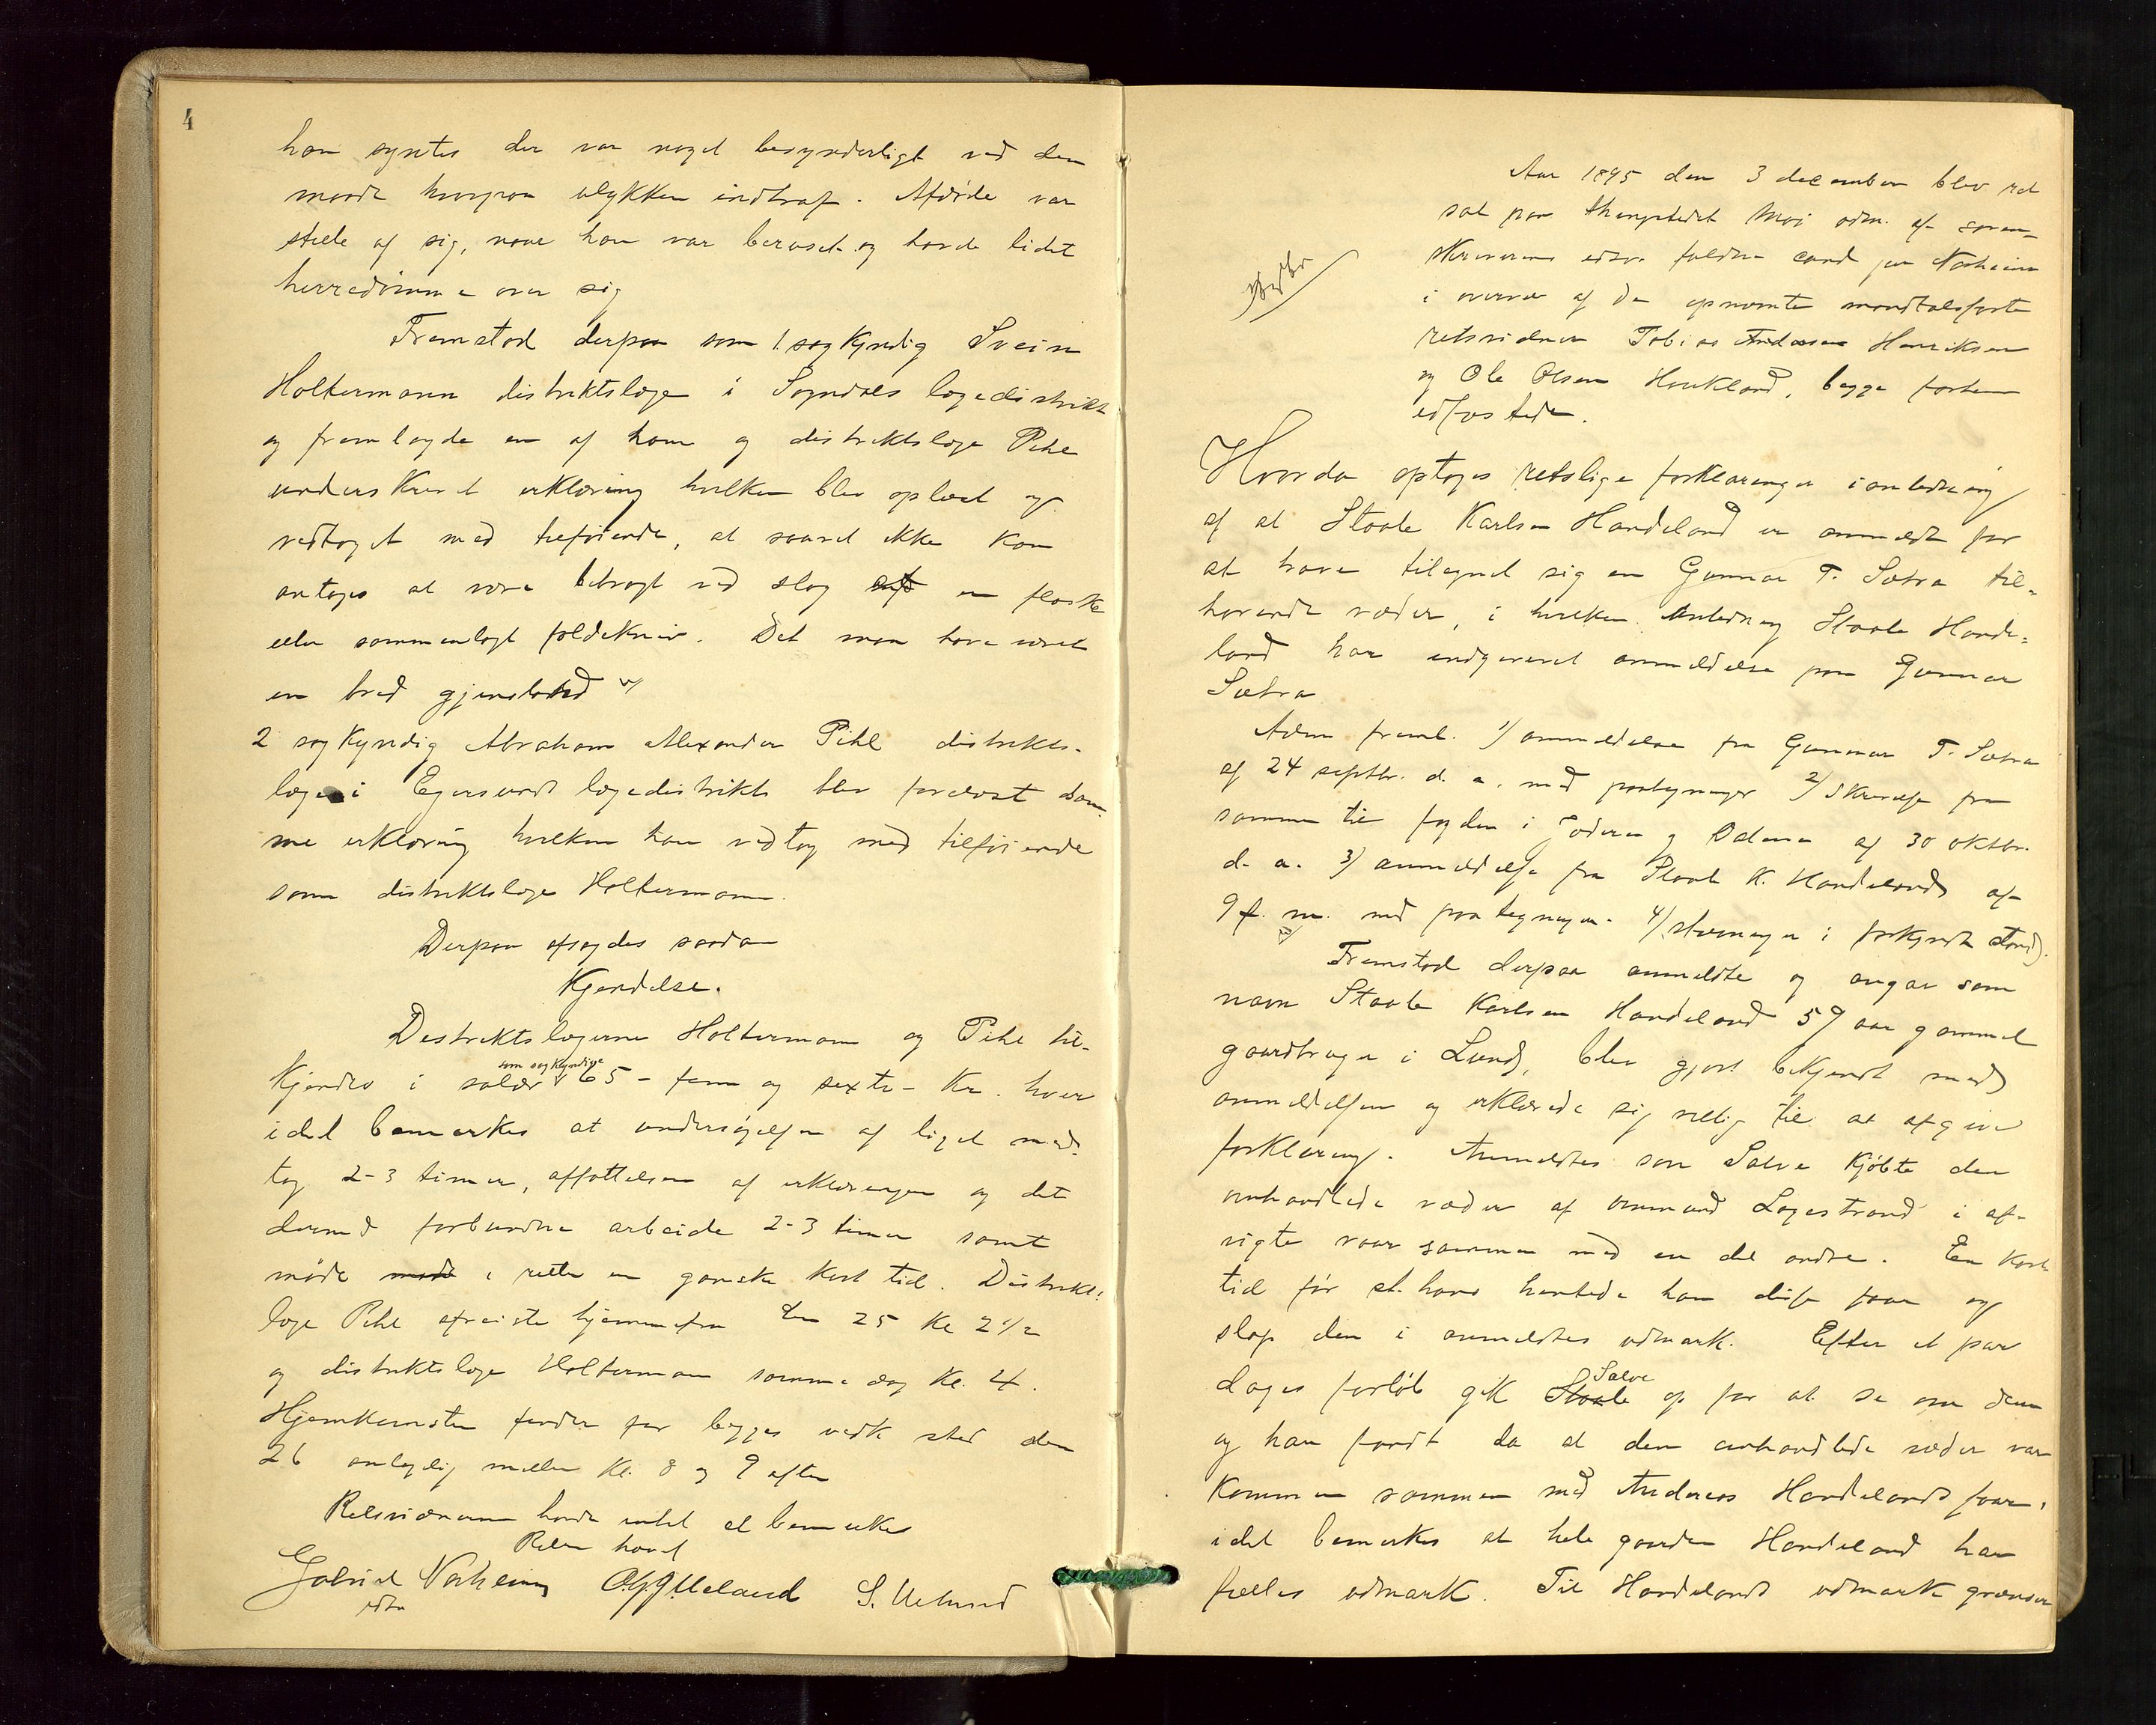 4
han syntes der var noget besynderligt ved den
maade hvorpaa ulykken indtraf. Afdøde var
stille af sig, naar han var beruset og havde lidet
herredømme over sig
Fremstod derpaa som 1 sagkyndig Svein
Holtermann distriktslæge i Sogndals lægedistrikt
og fremlagde en af ham og distriktslæge Pihl
underskrevet erklæring hvilken blev oplæst og
vedtaget med tilføiende, at saaret ikke kan
antages at være bibragt ved slag af en flaske
eller sammenlagt foldekniv. Det maa have været
en bred gjenstand
2 sagkyndig Abraham Alexander Pihl distrikts-
læge i Egersunds lægedistrikt blev forelæst sam-
me erklæring hvilken han vedtog med tilføiende
som distriktslæge Holtermann.
Derpaa afsagdes saadan
Kjendelse.
Distriktslægerne Holtermann og Pihl til-
som sagkyndige
kjendes i salær 65 - fem og sexti - Kr. hver
idet bemærkes at undersøgelsen af liget med-
tog 2-3 timer, affattelsen af erklæringen og det
dermed forbundne arbeide 2-3 timer samt
møde møde i retten en ganske kort tid. Distrikts-
læge Pihl afreiste hjemmefra den 25 Kl 2 1/2
og distriktslæge Holtermann samme dag Kl. 4.
Hjemkomsten finder for begges vedk sted den
26 antagelig mellem Kl. 8 og 9 aften
Retsvidnerne havde intet at bemærke
Retten hævet
Gabriel Norheim O. G. Ueland S. Uelund
edsv

Aar 1895 den 3 december blev ret
sat paa thingstedet Moi adm. af soren-
skriverens edsv. fuldm. cand jur Norheim
i overvær af de opnævnte mandtalsførte
retsvidner Tobias Andersen Henriksen
og Ole Olsen Haukland, begge forhen
edfæstede.
Hvorda optoges retslige forklaringer i anledning
af at Staale Karlsen Handeland er anmeldt for
at have tilegnet sig en Gunnar T. Sætra til-
hørende væder, i hvilken Anledning Staale Hande-
land har indgivet anmeldelse paa Gunnar
Sætra
Adm freml. 1/ anmeldelse fra Gunnar T. Sætra
af 24 septbr. d. a. med paategninger 2/ skrivelse fra
samme til fogden i Jæderen og Dalene af 30 oktbr.
d. a. 3/ anmeldelse fra Staale K. Handeland af
9 f. m. med paategninger. 4/ stævninger i forkyndt stand.
Fremstod derpaa anmeldte og angav som
navn Staale Karlsen Handeland 57 aar gammel
gaardbruger i Lund, blev gjort bekjendt med
anmeldelsen og erklærede sig villig til at afgive
forklaring. Anmeldtes søn Salve kjøbte den
omhandlede væder af Ommund Løgestrand i af-
vigte vaar sammen med en del andre. En kort
tid før st. hans hentede han disse faar og
slap dem i anmeldtes udmark. Efter et par
Salve
dages forløb gik Staale op for at se om dem
og han fandt da at den omhandlede væder var
kommen sammen med Andreas Handelands faar,
idet bemærkes at hele gaarden Handeland har
fælles udmark. Til Handelands udmark grændser